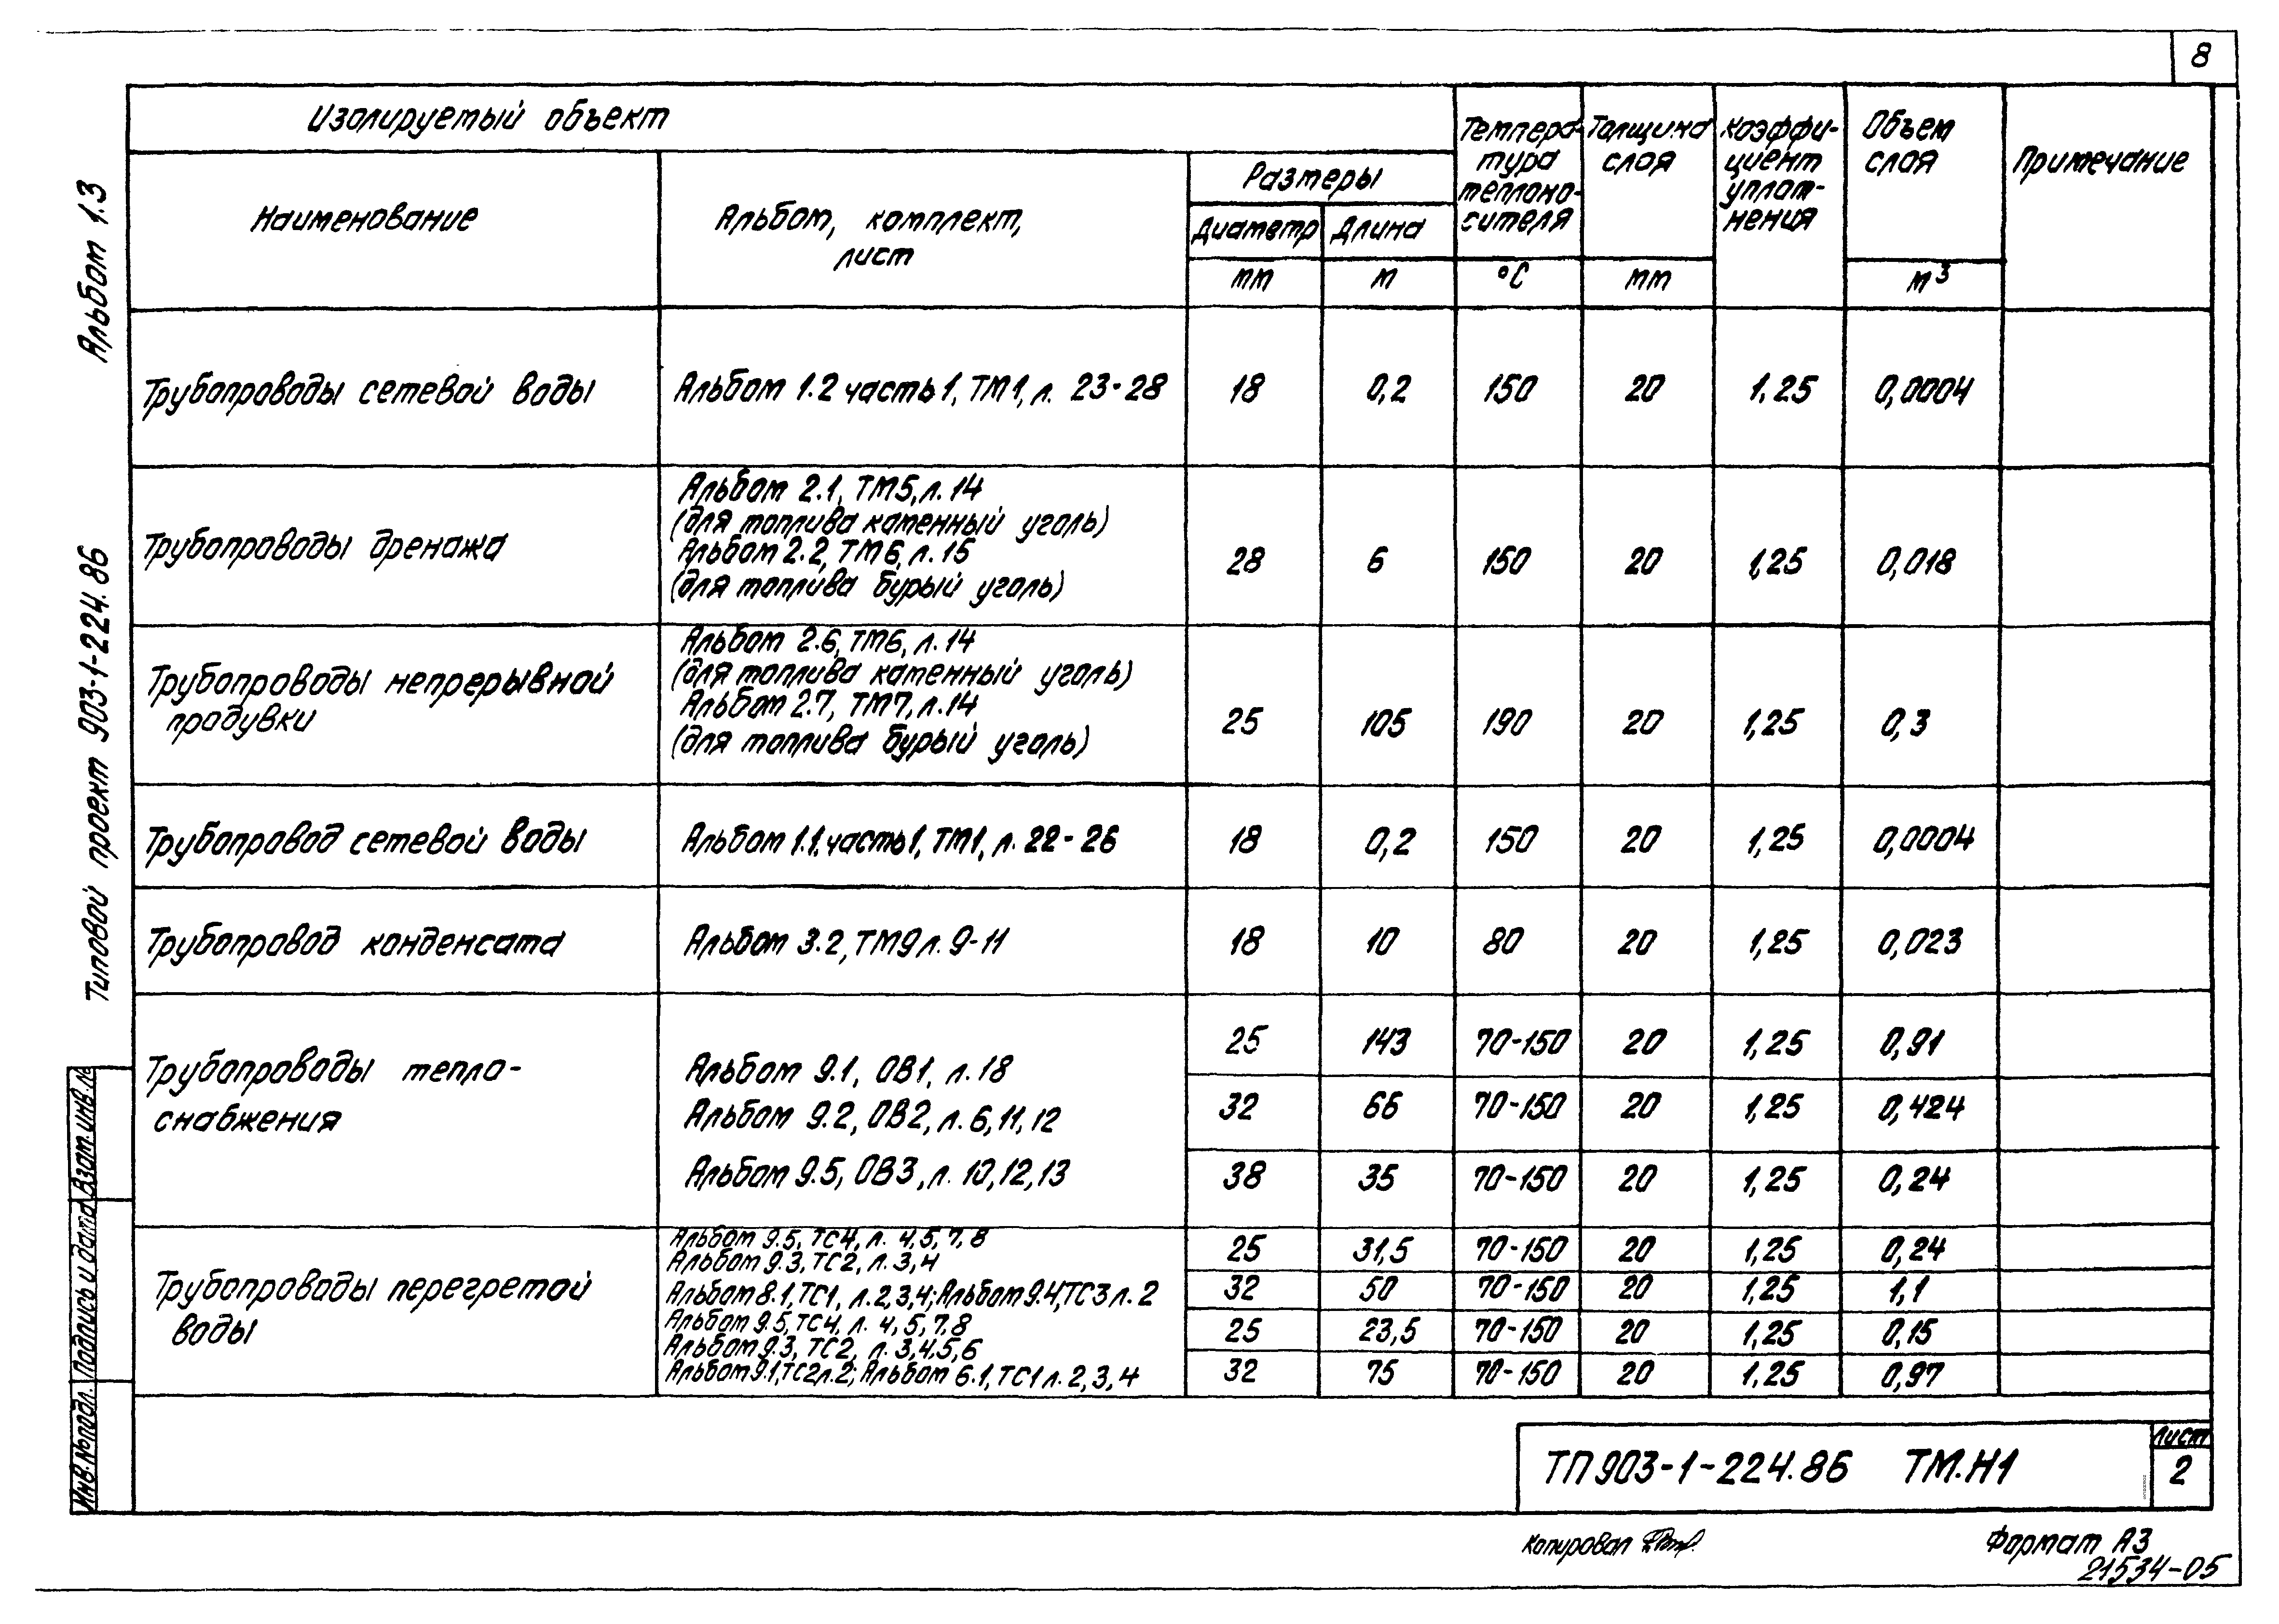 8
Альбом 1.3
Типовой проект 903-1-224.86
Изолируемый объект
Наименование
Альбом, комплект,
лист
Размеры
Диаметр
Длина
мм
м
Темпера-
тура
теплоно-
сителя
°С
Толщина
слоя
мм
Коэффи-
циент
уплот-
нения
Объем
слоя
м³
Примечание
Трубопроводы сетевой воды
Альбом 1.2 часть 1, ТМ1, л. 23-28
18 0,2 150 20 1,25 0,0004
Трубопроводы дренажа
Альбом 2.1, ТМ5, л. 14
(для топлива каменный уголь)
Альбом 2.2, ТМ6, л. 15
(для топлива бурый уголь)
28 6 150 20 1,25 0,018
Трубопроводы непрерывной
продувки
Альбом 2.6, ТМ6, л. 14
(для топлива каменный уголь)
Альбом 2.7, ТМ7, л. 14
(для топлива бурый уголь)
25 105 190 20 1,25 0,3
Трубопровод сетевой воды
Альбом 1.1. часть 1, ТМ1, л. 22-26
18 0,2 150 20 1,25 0,0004
Трубопровод конденсата
Альбом 3.2, ТМ9 л. 9-11
18 10 80 20 1,25 0,023
Трубопроводы тепло-
снабжения
Альбом 9.1, ОВ1, л. 18
Альбом 9.2, ОВ2, л. 6, 11, 12
Альбом 9.5, ОВ3, л. 10, 12, 13
25 143 70-150 20 1,25 0,91
32 66 70-150 20 1,25 0,424
38 35 70-150 20 1,25 0,24
Трубопроводы перегретой
воды
Альбом 9.5, ТС4, л. 4, 5, 7, 8
Альбом 9.3, ТС2, л. 3, 4
Альбом 8.1, ТС1, л. 2, 3, 4; Альбом 9.4, ТС3 л. 2
Альбом 9.5, ТС4, л. 4, 5, 7, 8
Альбом 9.3, ТС2, л. 3, 4, 5, 6
Альбом 9.1, ТС2 л. 2; Альбом 6.1, ТС1 л. 2, 3, 4
25 31,5 70-150 20 1,25 0,24
32 50 70-150 20 1,25 1,1
25 23,5 70-150 20 1,25 0,15
32 75 70-150 20 1,25 0,97
Инв. № подл. Подпись и дата Взам. инв. №
ТП 903-1-224.86 ТМ.Н1
Лист
2
Копировал
Формат А3
21534-05